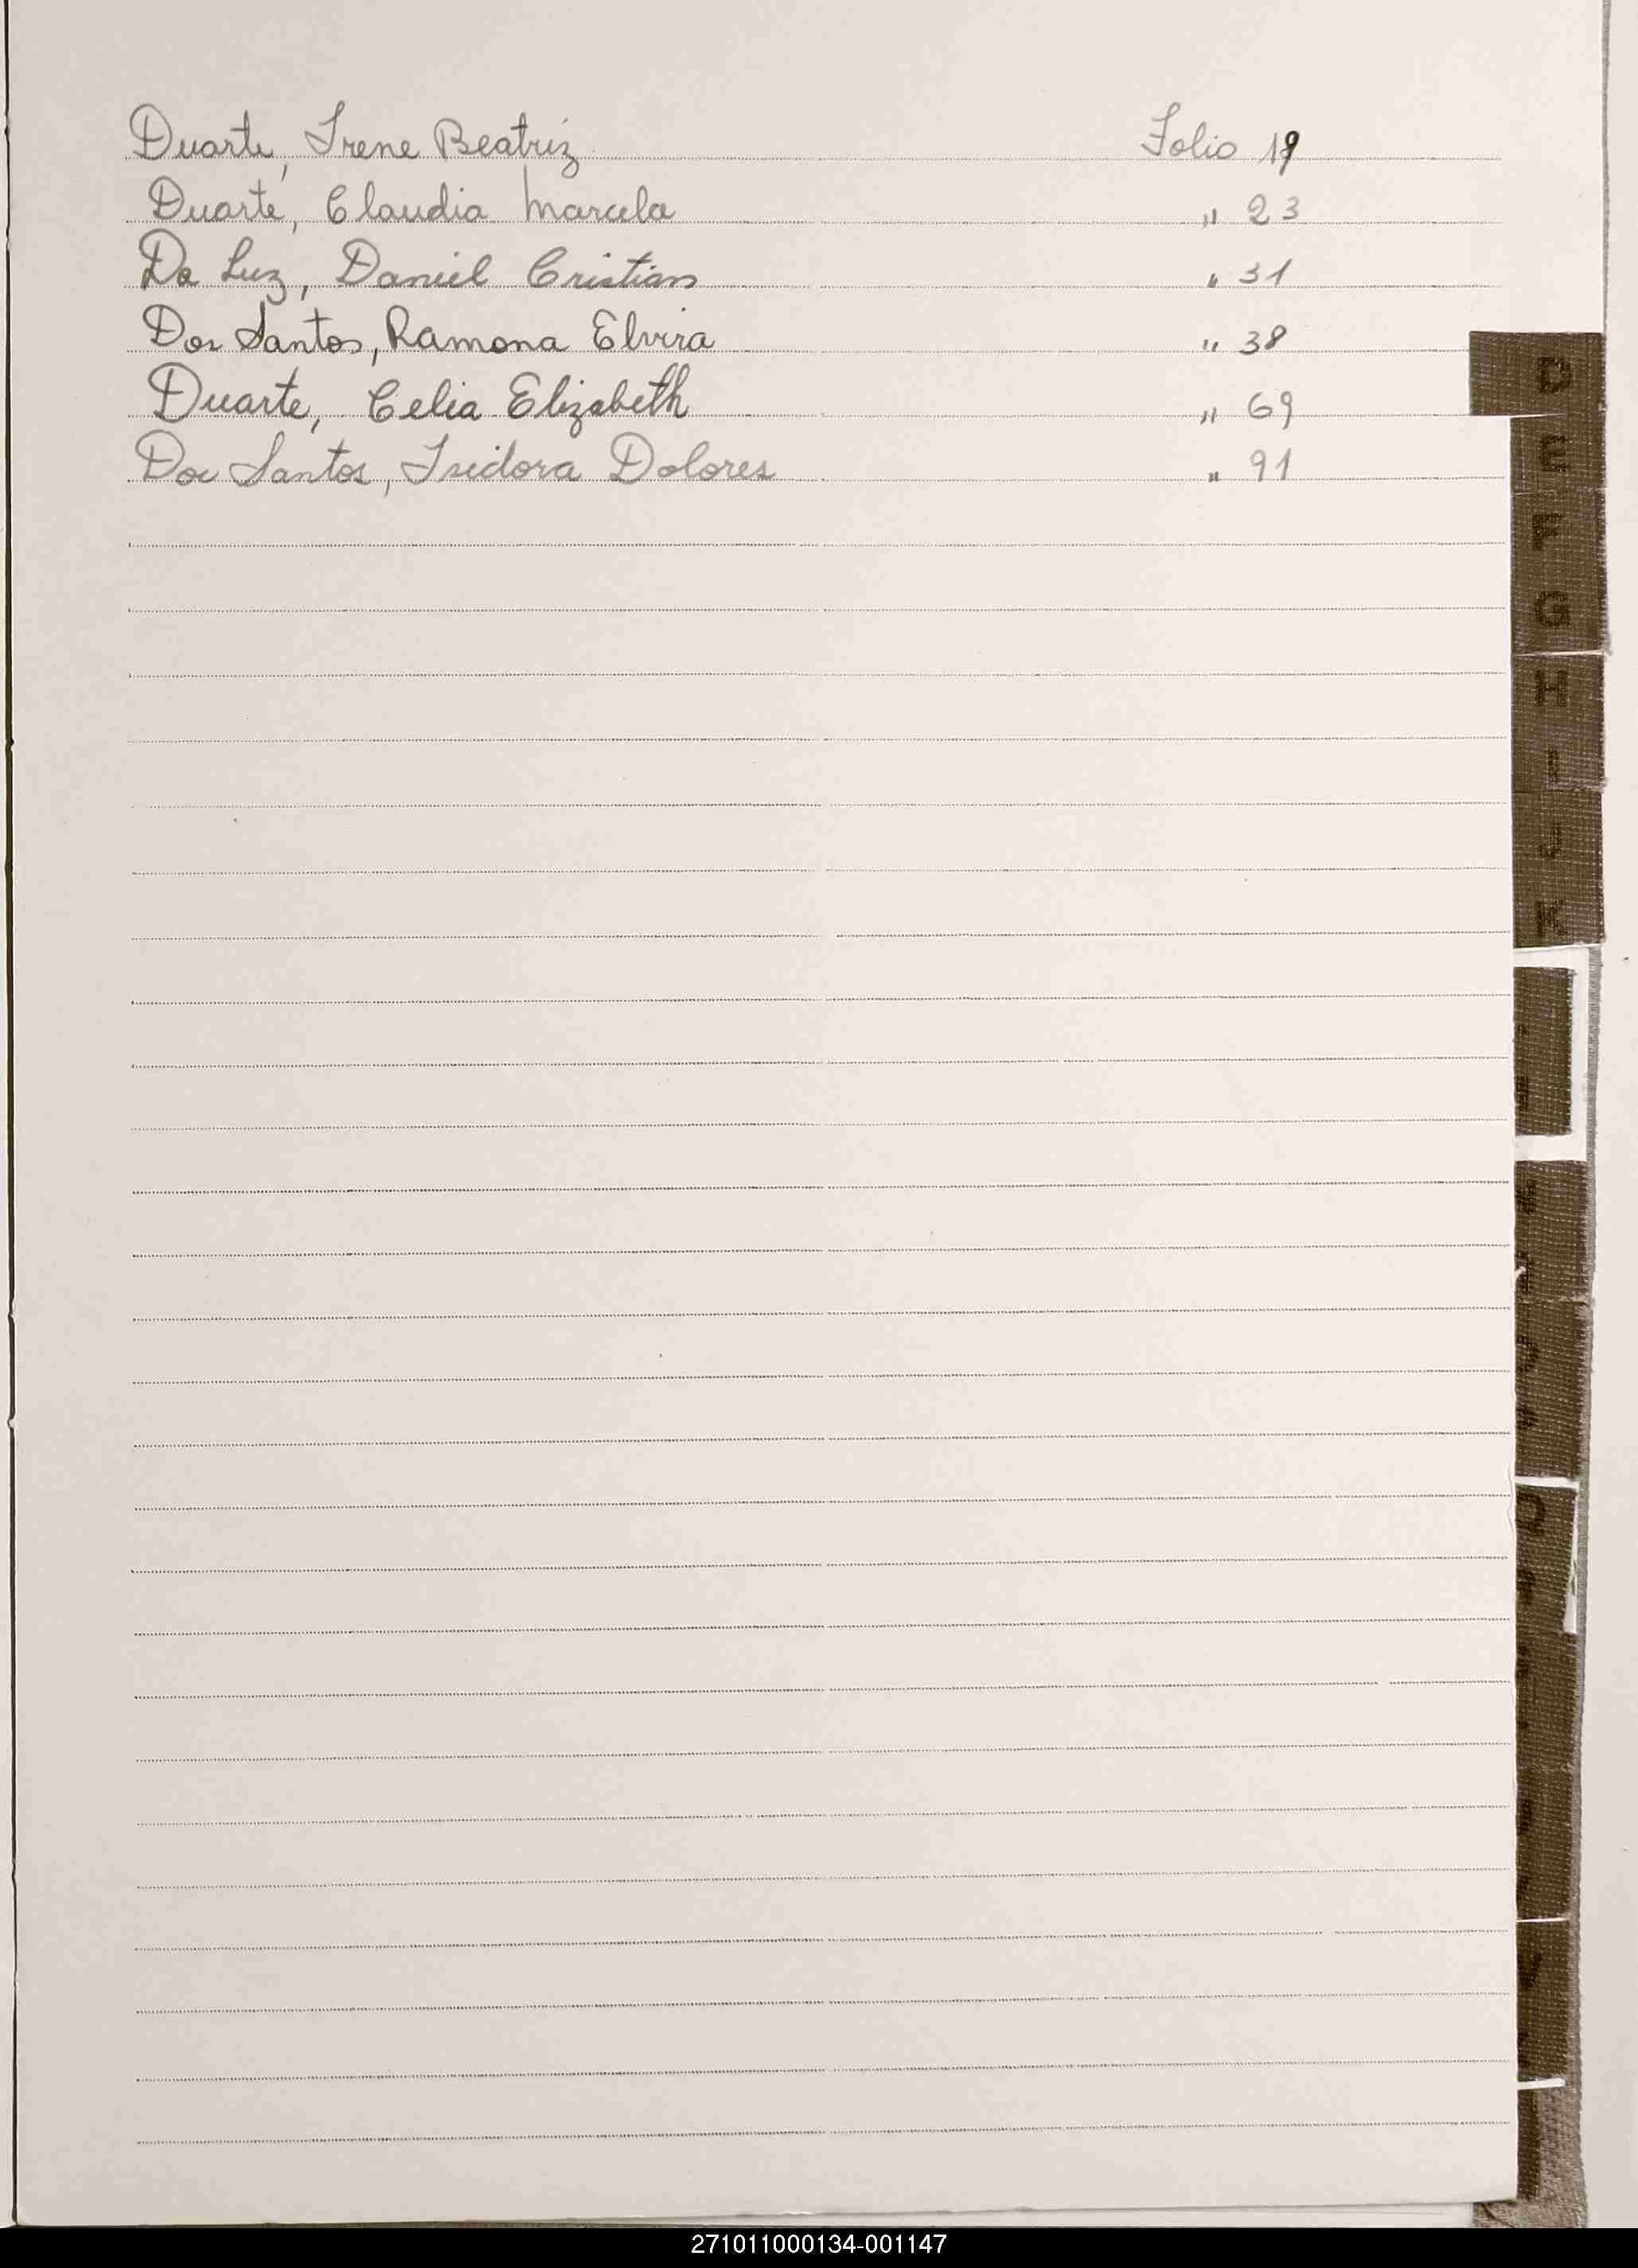 Duarte, Irene Beatriz Folio 19
Duarte, Claudia Marcela " 23
Da Luz, Daniel Cristian " 31
Dos Santos, Ramona Elvira " 38
Duarte, Celia Elizabeth " 69
Dos Santos, Isidora Dolores " 91
D
E
F
G
H
I
J
K
271011000134-001147